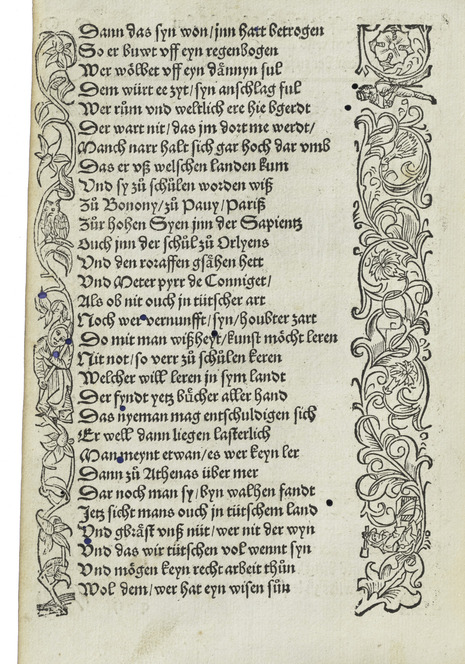 Dann das syn won/jnn hart betrogen
So er buwt vff eyn regenbogen
Wer wölbet vff eyn dännyn sul
Dem würt ee zyt/syn anschlag ful
Wer rům vnd weltlich ere hie bgerdt
Der wart nit/das jm dort me werdt/
Manch narr halt sich gar hoch dar vmb
Das er vß welschen landen kum
Vnd sy zů schůlen worden wiß
Zů Bonony/zů Pauy/Pariß
Zůr hohen Syen jnn der Sapientz
Ouch jnn der schůl zů Orlyens
Vnd den roraffen gsähen hett
Vnd Meter pyrr de Conniget/
Als ob nit ouch in tütscher art
Noch wer vernunfft/syn/houbter zart
Do mit man wißheyt/kunst möcht leren
Nit not/so verr zů schůlen keren
Welcher will leren in sym landt
Der fyndt yetz bücher aller hand
Das nyeman mag entschuldigen sich
Er well dann liegen lasterlich
Man meynt etwan/es wer keyn ler
Dann zů Athenas über mer
Dar noch man sy/byn walhen fandt
Jetz sicht mans ouch jn tütschem land
Vnd gbräst vnß nüt/wer nit der wyn
Vnd das wir tütschen vol wennt syn
Vnd mögen keyn recht arbeit thůn
Wol dem/wer hat eyn wisen sůn